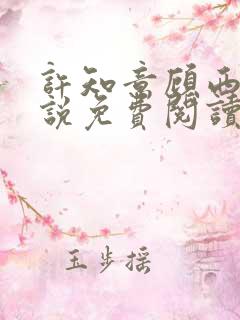 許知意顧西
說免費閱讀
玉步搖